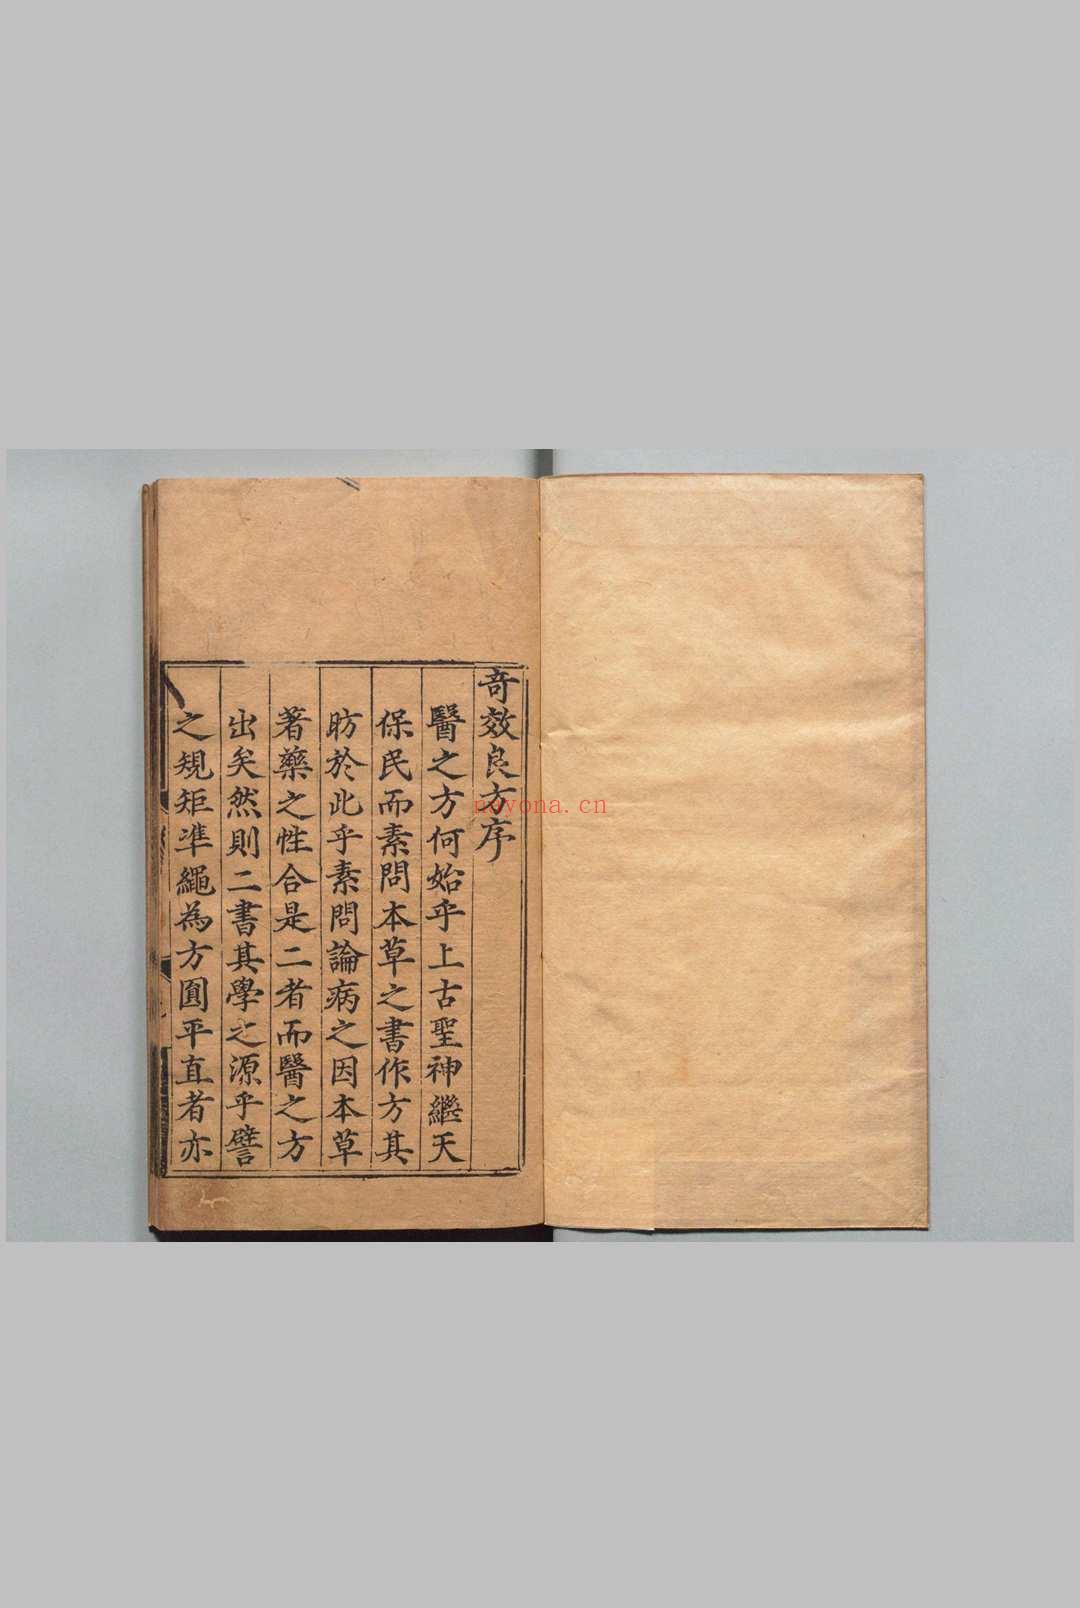 奇效良方序
醫之方何始乎上古聖神繼天
保民而素問本草之書作方其
昉於此乎素問論病之因本草
著藥之性合是二者而醫之方
出矣然則二書其學之源乎譬
之規矩凖繩為方圓平直者亦
nayona.cn